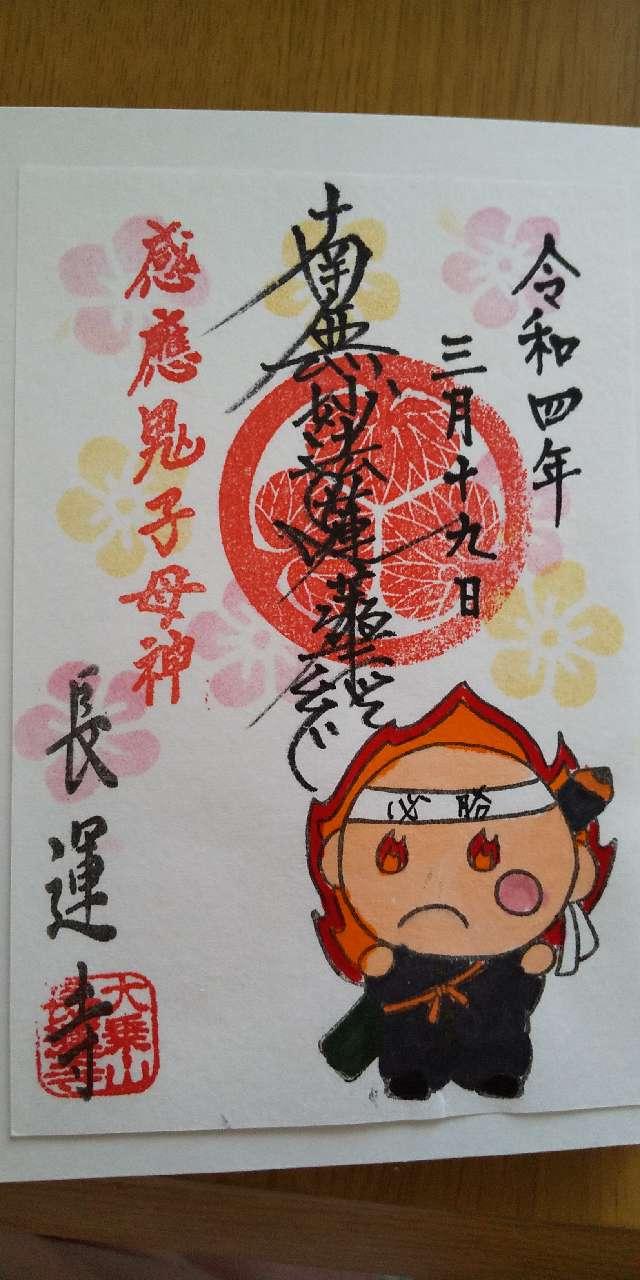 令和四年
三月十九日
南無妙法蓮華経
感應鬼子母神
長運寺
大乗山
長運寺
必勝